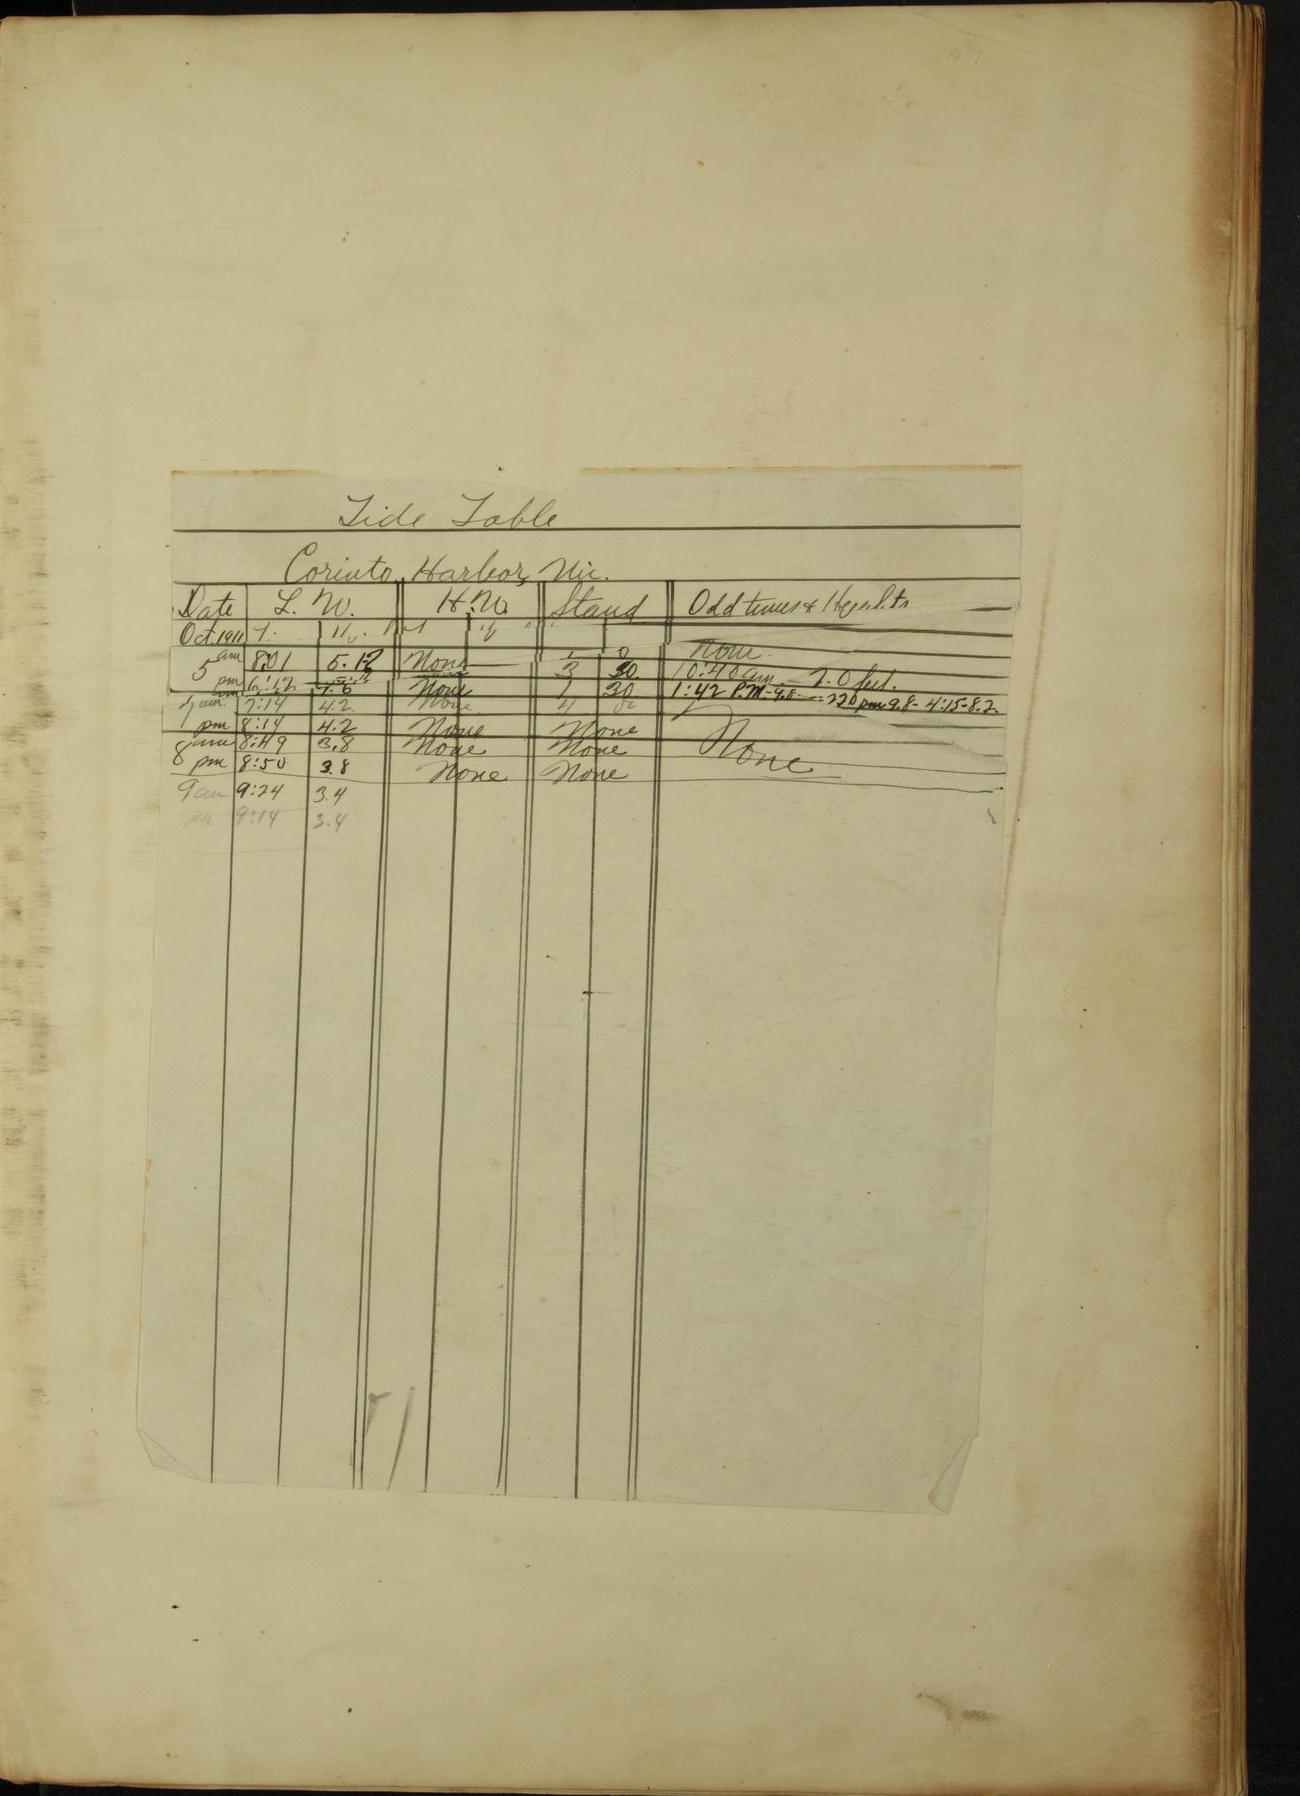 Tide Table
Corinto, Harbor, Nic.
Date L. W. H. W. Stand Odd times & Heights
Oct. 1911 T. H. H
am 8:01 5.12 None None
5 3 30 10:40 am 2.0 feet.
pm 6:12 7.6 None 1 30 1:42 P.M - 9.8 - 220 pm 9.8 - 4:15 - 8.2
7 am 7:14 4.2 None 4
pm 8:14 4.2 None None None
8 am 8:49 3.8 None None
pm 8:50 3.8 None None
9 am 9:24 3.4
pm 9:14 3.4